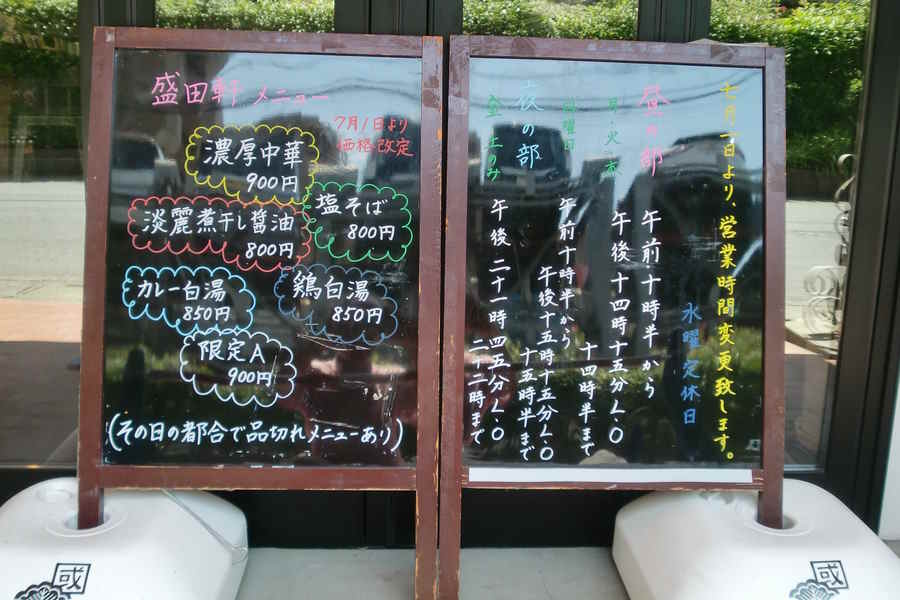 盛田軒 メニュー
7月1日より
価格改定
濃厚中華
900円
塩そば
800円
淡麗煮干し醤油
800円
カレー白湯
850円
鶏白湯
850円
限定A
900円
(その日の都合で品切れメニューあり)
七月一日より、営業時間変更致します。
水曜定休日
昼の部
午前十時半から
月・火・木
午後十四時十五分L.O
十四時半まで
日曜日
午前十時半から
午後十五時十五分L.O
十五時半まで
夜の部
金、土のみ
午後二十一時四五分L.O
二十二時まで
或
或